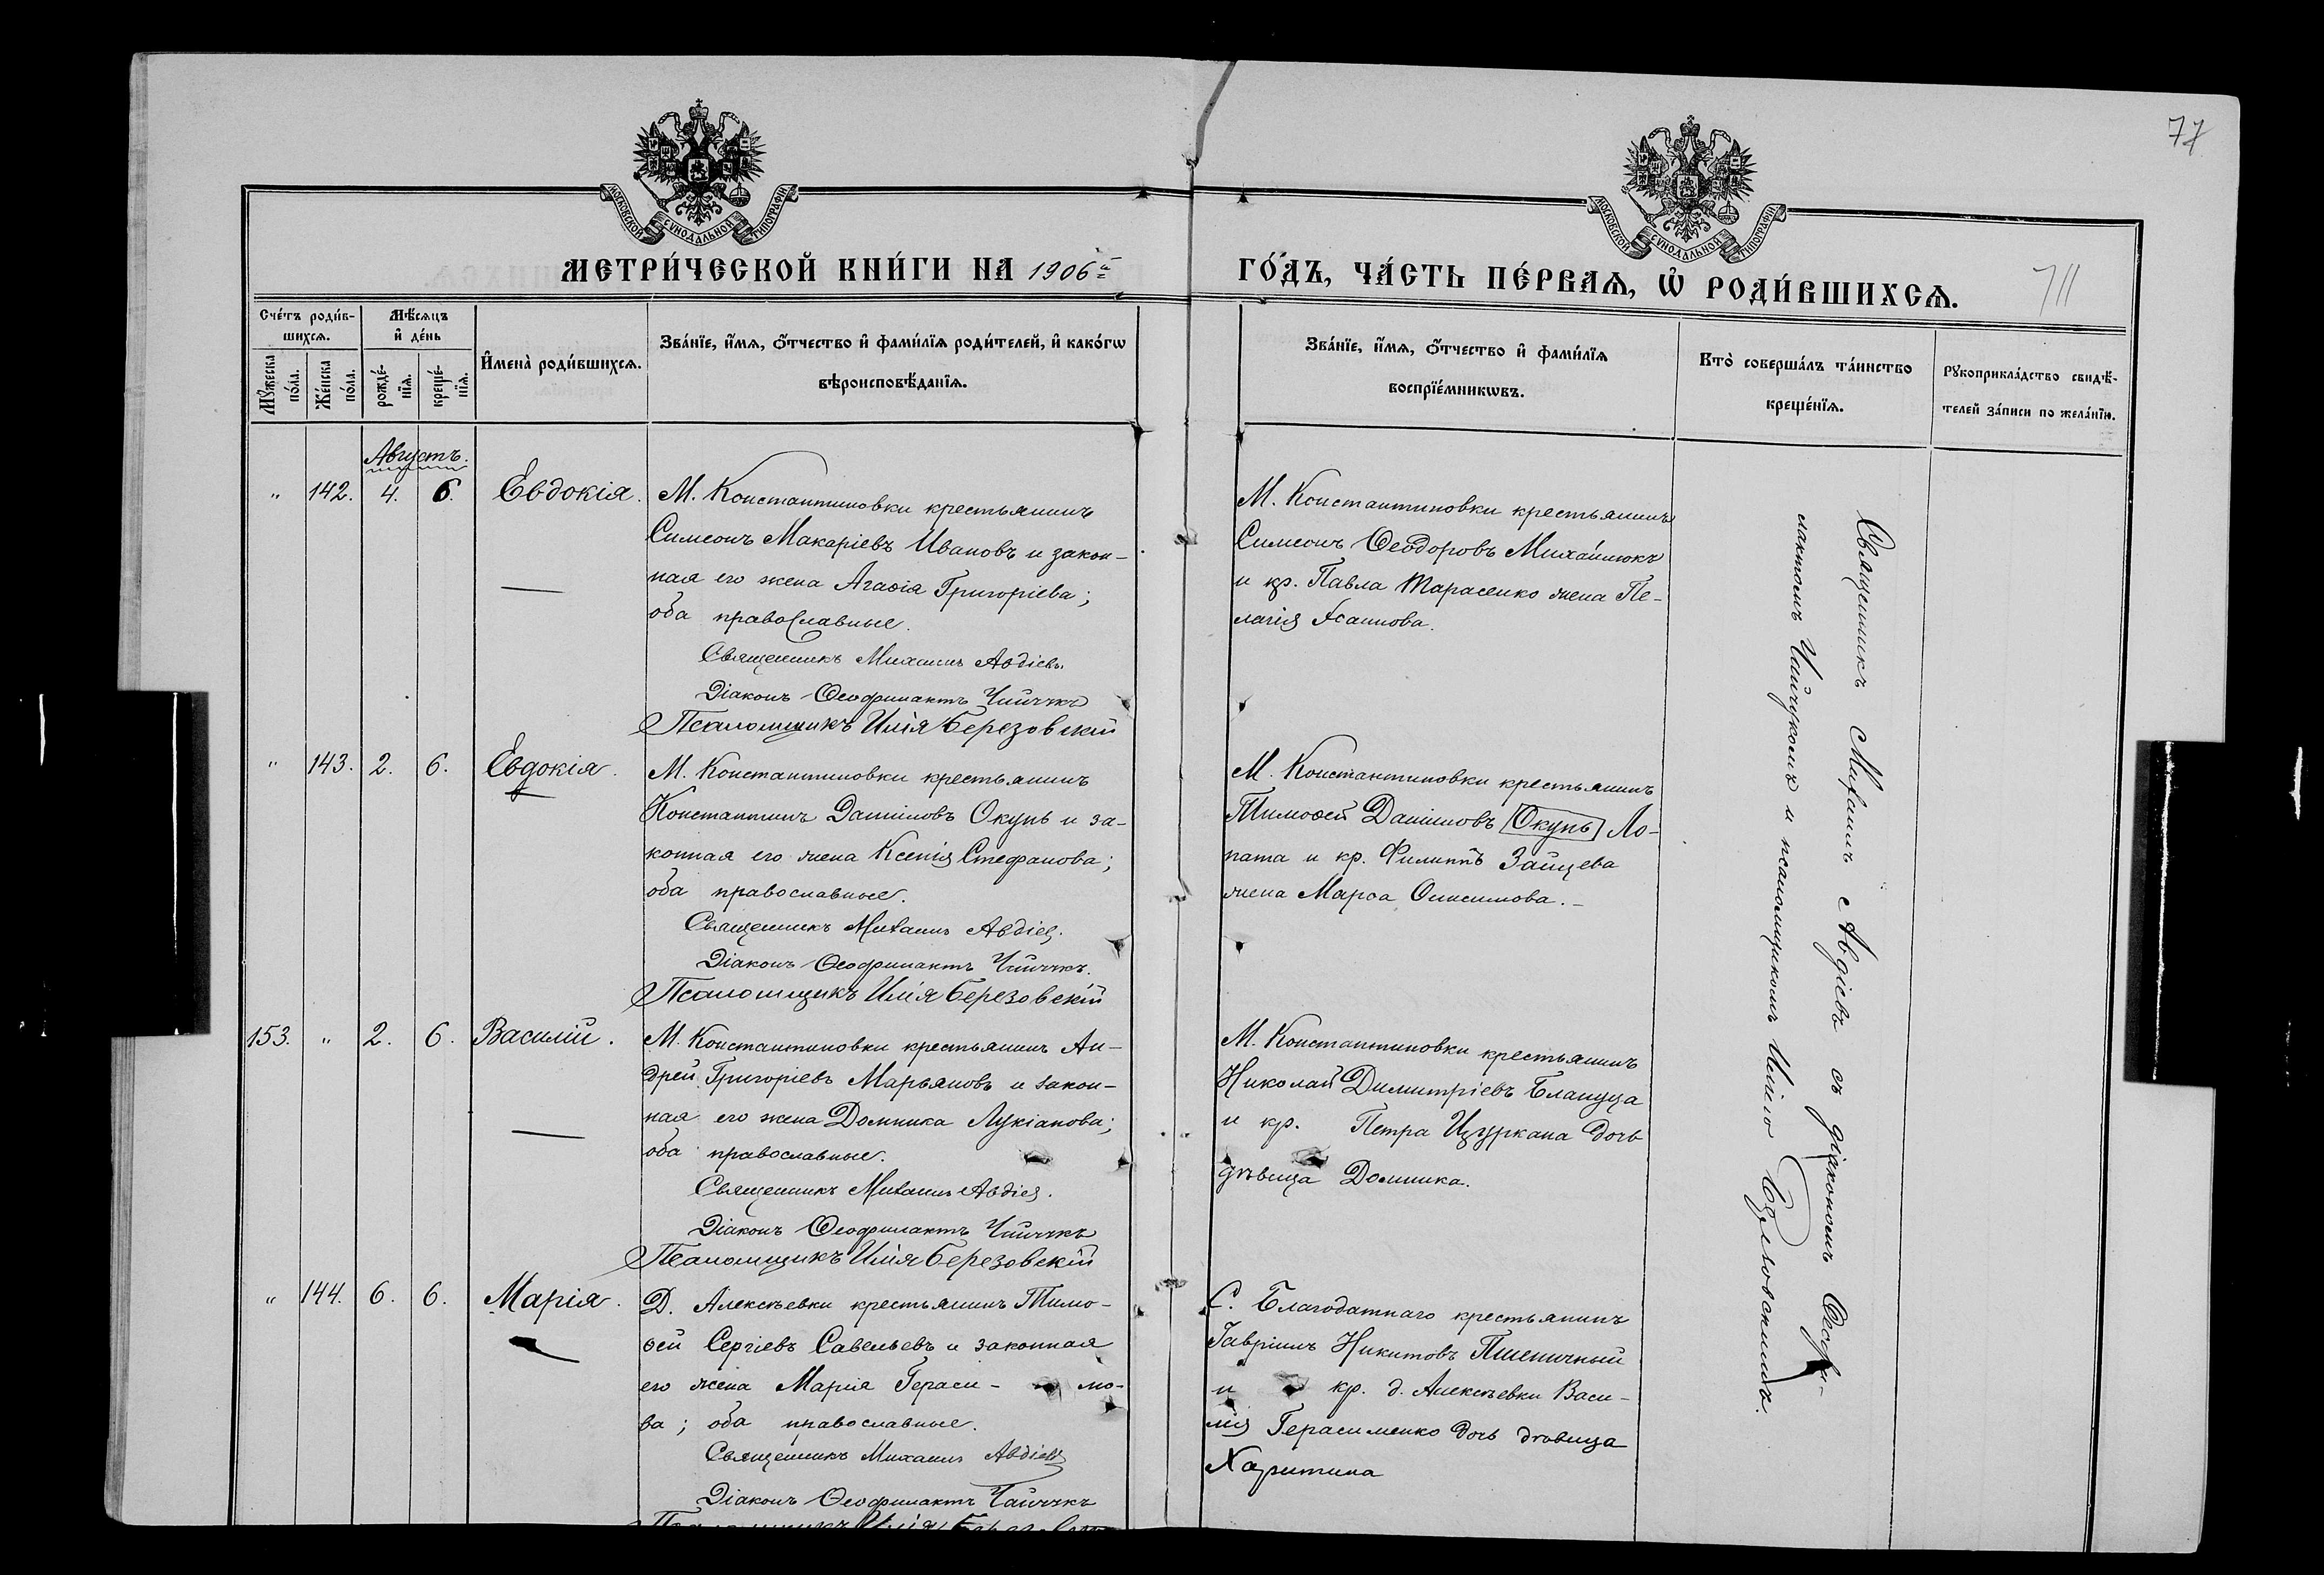 77
МОСКОВСКОЙ СУНОДАЛЬНОЙ ТИПОГРАФІИ
МОСКОВСКОЙ СУНОДАЛЬНОЙ ТИПОГРАФІИ
МЕТРИ́ЧЕСКОЙ КНИ́ГИ НА 1906й
ГО́ДЪ, ЧА́СТЬ ПЕ́РВАѦ, Ѡ҆ РОДИ́ВШИХСѦ.
711
Сче́тъ роди́в-
шихсѧ.
Мꙋ́жеска по́ла.
Же́нска по́ла.
Мѣ́сѧцъ
и҆ де́нь
рожде́-
нїѧ.
креще́-
нїѧ.
И҆мена̀ роди́вшихсѧ.
Зва́нїе, и҆́мѧ, ѻ҆́тчество и҆ фами́лїѧ роди́телей, и҆ како́гѡ
вѣроисповѣ́данїѧ.
Зва́нїе, и҆́мѧ, ѻ҆́тчество и҆ фами́лїѧ
воспрїе́мникѡвъ.
Кто̀ соверша́лъ та́инство
креще́нїѧ.
Рꙋкоприкла́дство свидѣ́-
телей за́писи по жела́нїю.
Августъ.
" 142. 4. 6. Евдокія.
М. Константиновки крестьянинъ
Симеонъ Макаріевъ Ивановъ и закон-
ная его жена Агаѳія Григоріева;
оба православные.
Священникъ Михаилъ Авдіевъ.
Діаконъ Ѳеофилактъ Чайчукъ
Псаломщикъ Илія Березовскій
М. Константиновки крестьянинъ
Симеонъ Ѳеодоровъ Михайлюкъ
и кр. Павла Тарасенко жена Пе-
лагія Іоаннова.
" 143. 2. 6. Евдокія.
М. Константиновки крестьянинъ
Константинъ Даниловъ Окунь и за-
конная его жена Ксенія Стефанова;
оба православные.
Священникъ Михаилъ Авдіев.
Діаконъ Ѳеофилактъ Чайчукъ.
Псаломщикъ Илія Березовскій
М. Константиновки крестьянинъ
Тимоѳей Даниловъ Окунь Ло-
пата и кр. Филиппъ Зайцева
жена Марѳа Онисимова.
153. " 2. 6. Василій.
М. Константиновки крестьянинъ Ан-
дрей Григоріевъ Марьяновъ и закон-
ная его жена Домника Лукіанова;
оба православные.
Священникъ Михаилъ Авдіев.
Діаконъ Ѳеофилактъ Чайчукъ
Псаломщикъ Илія Березовскій
М. Константиновки крестьянинъ
Николай Димитріевъ Блануца
и кр. Петра Цуркана дочь
дѣвица Домника.
" 144. 6. 6. Марія.
Д. Алексѣевки крестьянинъ Тимо-
ѳей Сергіевъ Савельевъ и законная
его жена Марія Гераси- мо-
ва; оба православные.
Священникъ Михаилъ Авдіевъ
Діаконъ Ѳеофилактъ Чайчукъ
Псаломщикъ Илія Березовскій
С. Благодатнаго крестьянинъ
Гавріилъ Никитовъ Пшеничный
и кр. д. Алексѣевки Васи-
лія Герасименко дочь дѣвица
Харитина
Священникъ Михаилъ Авдіевъ съ діакономъ Ѳеофи-
лактомъ Чайчукомъ и псаломщикомъ Иліею Березовскимъ.